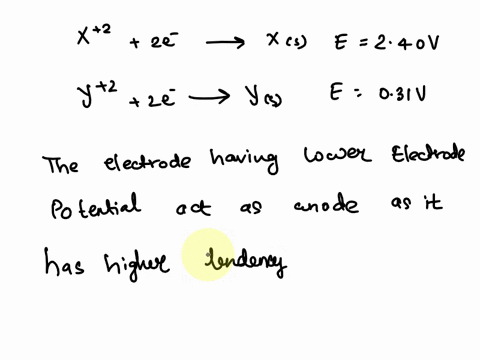 X⁺² + 2e⁻ → X(s) E = 2.40V
y⁺² + 2e⁻ → y(s) E = 0.31V
The electrode having lower Electrode
Potential act as anode as it
has higher tendency